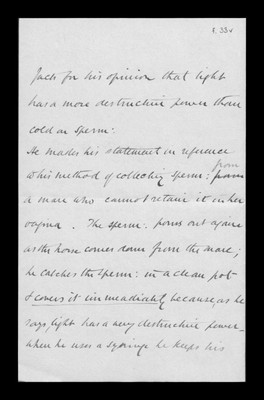 f. 33v
Jack for his opinion that light
has a more destructive power than
cold on sperm:
He makes his statement in reference
to his method of collecting sperm: from
a mare who cannot retain it in her
vagina. The sperm: pours out again
as the horse comes down from the mare;
he catches the sperm: in a clean pot
& covers it immediately because, as he
says, light has a very destructive power_
when he uses a syringe he keeps his